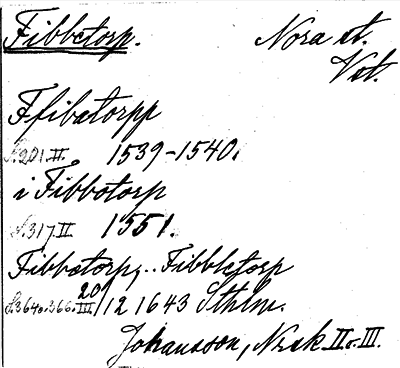 Fibbetorp. Nora st.
Vst.
Ffibatorpp
S. 201. II. 1539-1540.
i Fibbotorp
S. 317. II 1551.
Fibbatorp, .. Fibbletorp
S. 364 o. 366. III. 20/12 1643 Sthlm.
Johansson, Norsk. II o. III.